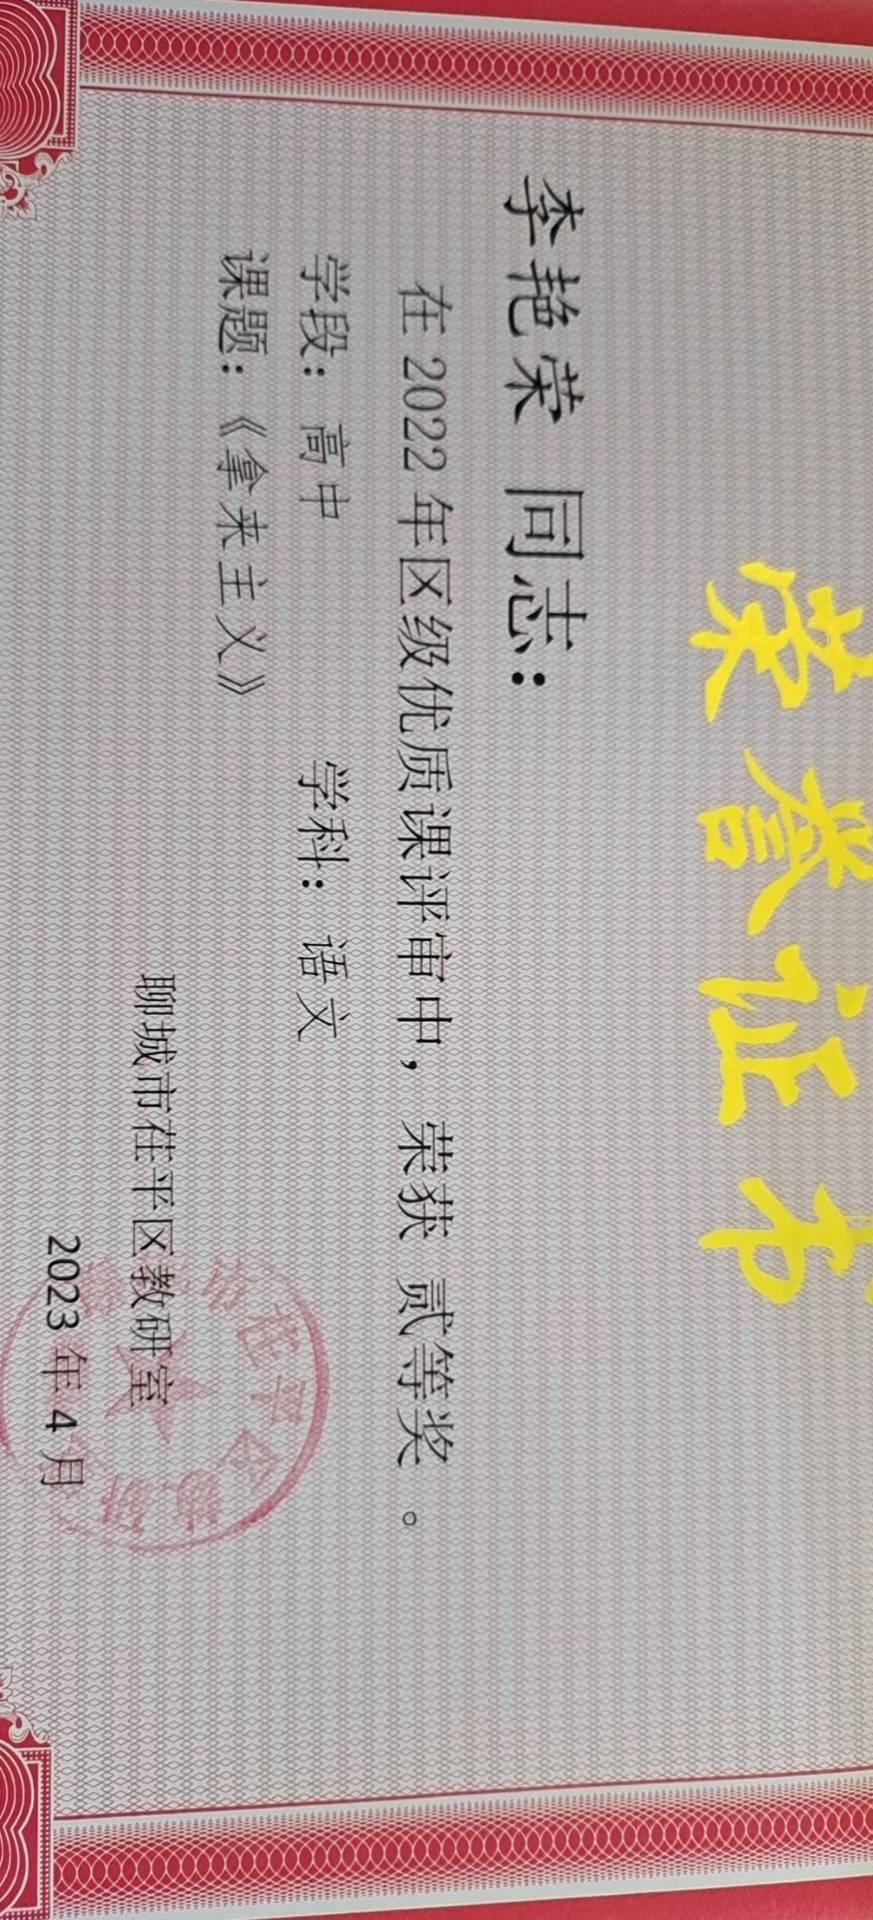 荣誉证书
李艳荣 同志：
在 2022 年区级优质课评审中，荣获 贰等奖 。
学段：高中 学科：语文
课题：《拿来主义》
聊城市茌平区教研室
2023 年 4 月
市茌平区教研